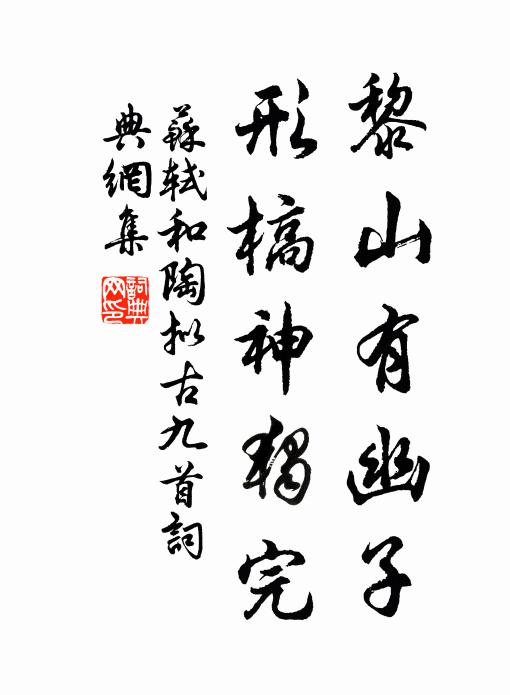 黎山有幽子
形槁神獨完
蘇軾和陶拟古九首詞
典網集
詞典
网印